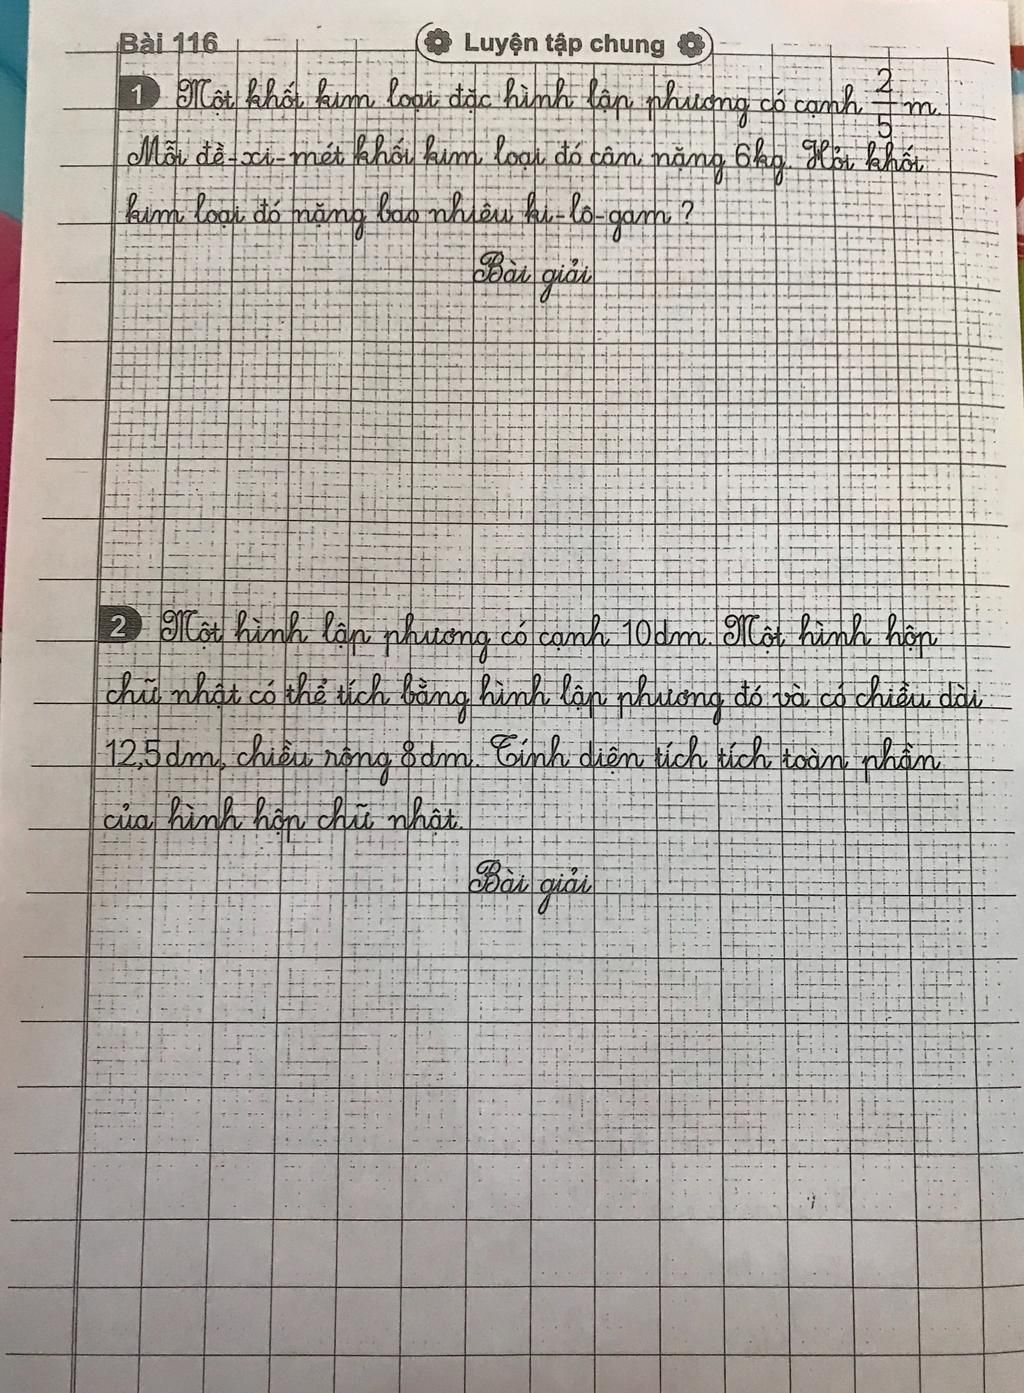 Bài 116
Luyện tập chung
1 Một khối kim loại đặc hình lập phương có cạnh 2/5 m.
Mỗi đề-xi-mét khối kim loại đó cân nặng 6kg. Hỏi khối
kim loại đó nặng bao nhiêu ki-lô-gam?
Bài giải
2 Một hình lập phương có cạnh 10dm. Một hình hộp
chữ nhật có thể tích bằng hình lập phương đó và có chiều dài
12,5dm, chiều rộng 8dm. Tính diện tích tích toàn phần
của hình hộp chữ nhật.
Bài giải